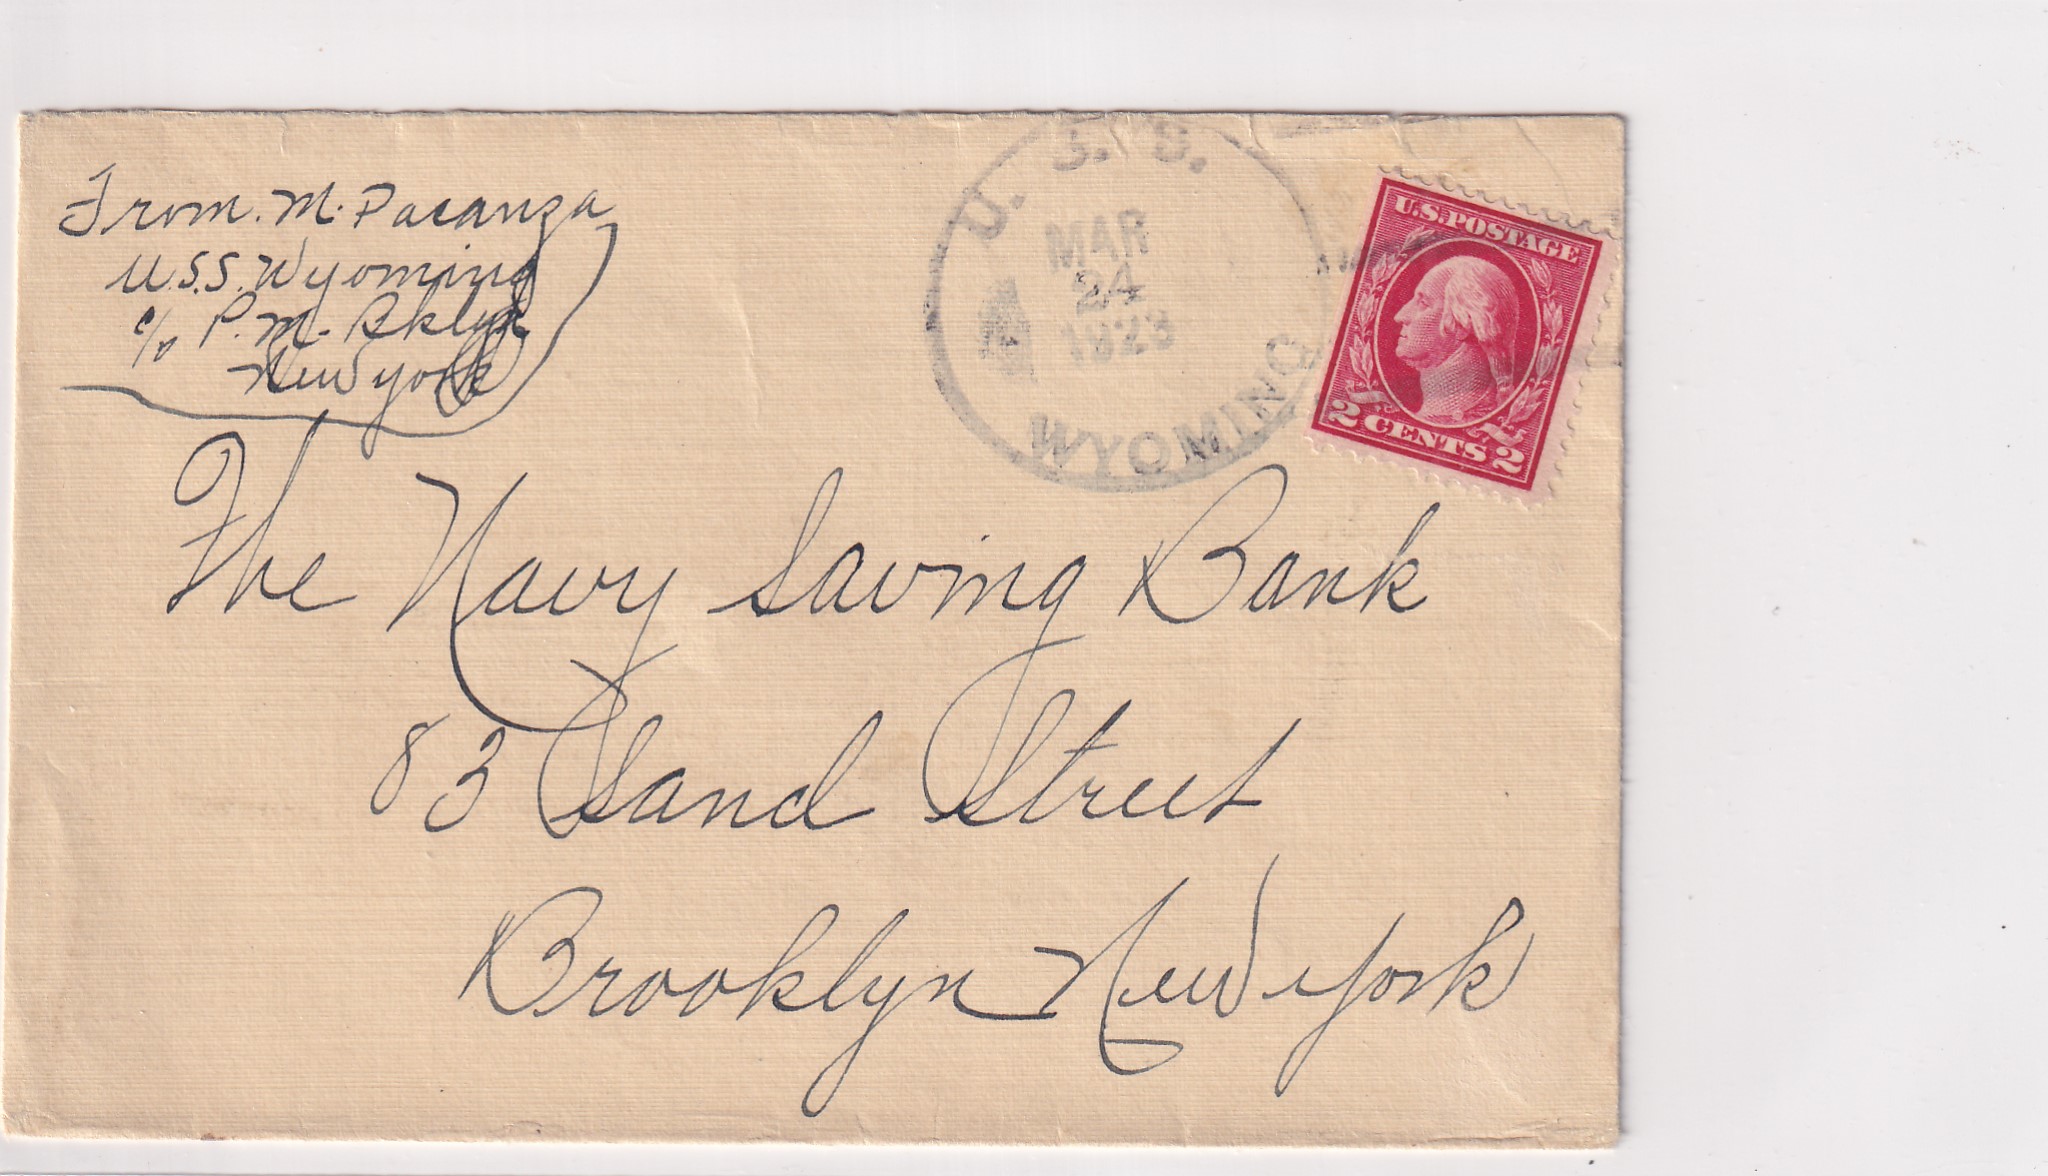 From. M. Pacanza
U.S.S. Wyoming
c/o P.M. Bklyn
New york
U. S. S.
MAR
24
1923
WYOMING
U.S. POSTAGE
2 CENTS 2
The Navy Saving Bank
83 Sand Street
Brooklyn New york